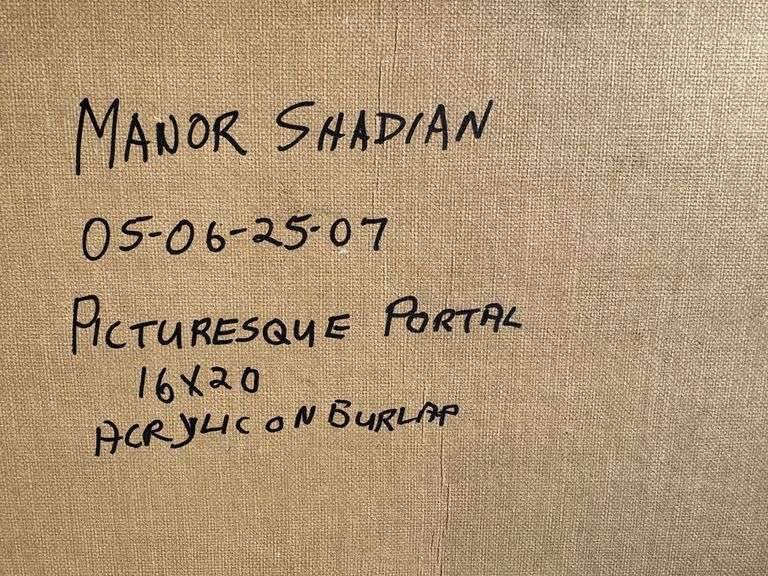 MANOR SHADIAN
05-06-25-07
PICTURESQUE PORTAL
16X20
ACRYLIC ON BURLAP